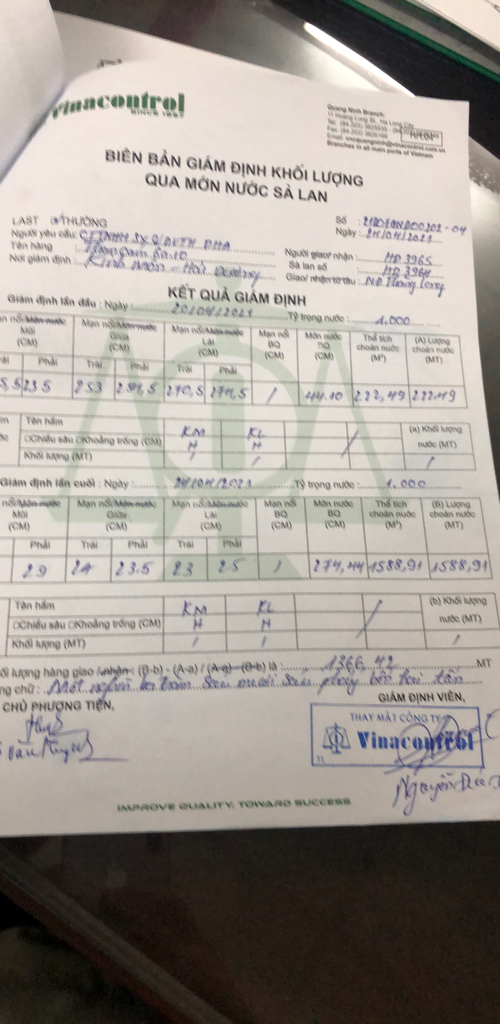 Vinacontrol
SINCE 1957
Quang Ninh Branch:
11 Hoang Long St., Ha Long City
Branches in all main ports of Vietnam
BIÊN BẢN GIÁM ĐỊNH KHỐI LƯỢNG
QUA MỚN NƯỚC SÀ LAN
LAST THƯỜNG
Số :
Người yêu cầu: CTTNHH SX & DVTM DHA
Ngày: 24/04/2021
Tên hàng
Người giao/ nhận : HD 3965
Nơi giám định : Kinh Môn - Hải Dương
Sà lan số : HD 3964
Giao/ nhận từ tàu :
KẾT QUẢ GIÁM ĐỊNH
Giám định lần đầu : Ngày : 20/04/2021 Tỷ trọng nước : 1,000
Mạn nổi/Món nước Mạn nổi/Món nước Mạn nổi Món nước Thể tích (A) Lượng
Mũi Giữa Lái BQ BQ choán nước choán nước
(CM) (CM) (CM) (CM) (CM) (M³) (MT)
Phải Trái Phải Trái Phải
235 253 270,5 271,5 / 44.10 222,49 222.49
Tên hầm KM KL / (a) Khối lượng
□Chiều sâu □Khoảng trống (CM) H H nước (MT)
Khối lượng (MT) / / /
Giám định lần cuối : Ngày : 24/04/2021 Tỷ trọng nước : 1,000
nổi/Món nước Mạn nổi/Món nước Mạn nổi/Món nước Mạn nổi Món nước Thể tích (B) Lượng
Mũi Giữa Lái BQ BQ choán nước choán nước
(CM) (CM) (CM) (CM) (CM) (M³) (MT)
Phải Trái Phải Trái Phải
29 24 23.5 23 25 / 274,44 1588,91 1588,91
Tên hầm KM KL / (b) Khối lượng
□Chiều sâu □Khoảng trống (CM) H H nước (MT)
Khối lượng (MT) / / /
ối lượng hàng giao / nhận : (B-b) - (A-a) / (A-a) - (B-b) là : 1366,42 MT
ng chữ : Một nghìn ba trăm sáu mươi sáu phẩy bốn hai tấn
CHỦ PHƯƠNG TIỆN, GIÁM ĐỊNH VIÊN,
THAY MẶT CÔNG TY
Vinacontrol
Nguyễn
IMPROVE QUALITY, TOWARD SUCCESS